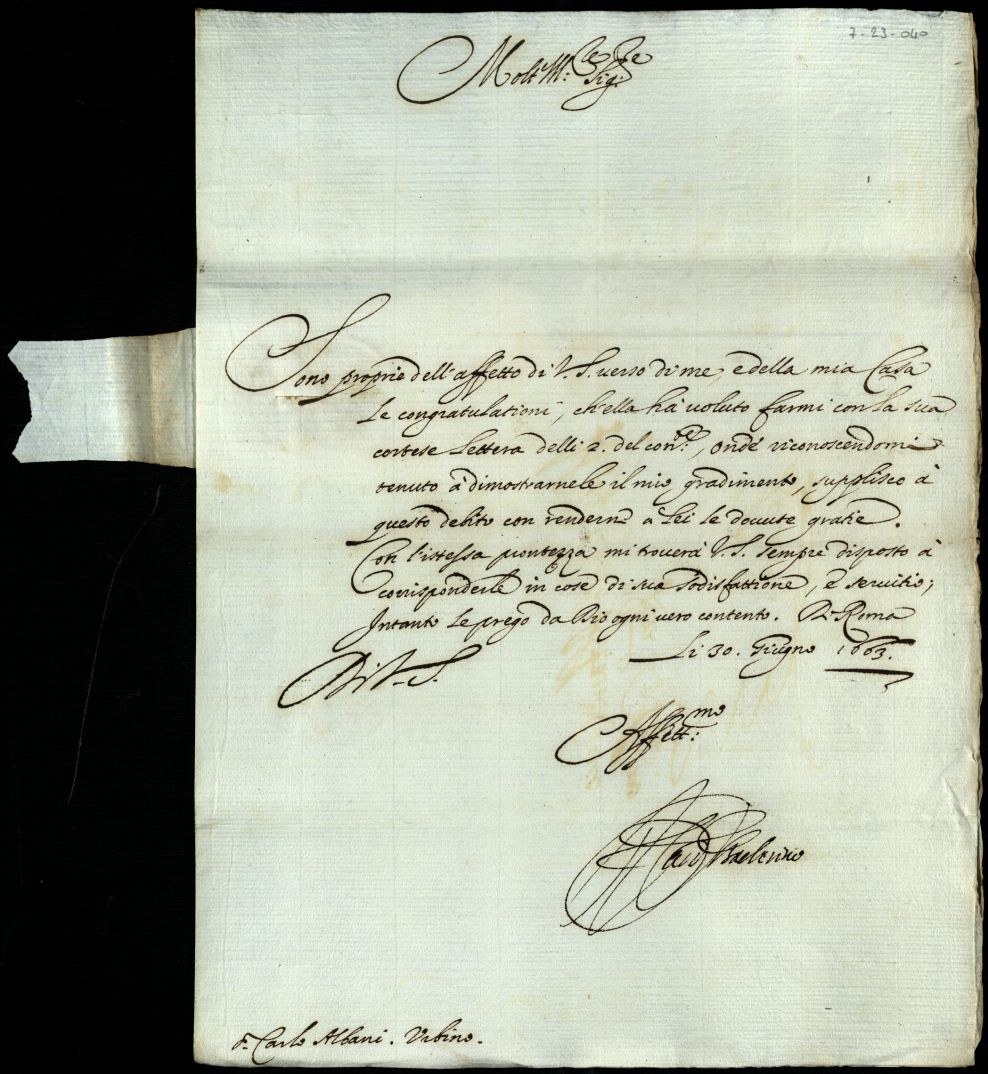 7-23-040
Molt' Ill:re Sig:re
Sono proprie dell'affetto di V.S. uerso di me, e della mia Casa
le congratulationi, ch'ella hà uoluto farmi con la sua
cortese lettera delli 2. del con:te, onde riconoscendomi
tenuto à dimostrarnele il mio gradimento, supplisco à
questo debito con renderne à lei le douute gratie.
Con l'istessa prontezza mi trouerà V.S. sempre disposto à
corrisponderle in cose di sua sodisfattione, e seruitio;
Intanto le prego da Dio ogni uero contento. Di Roma
li 30. Giugno 1663.
Di V.S.
Affett:mo
S. Carlo Albani. Urbino.